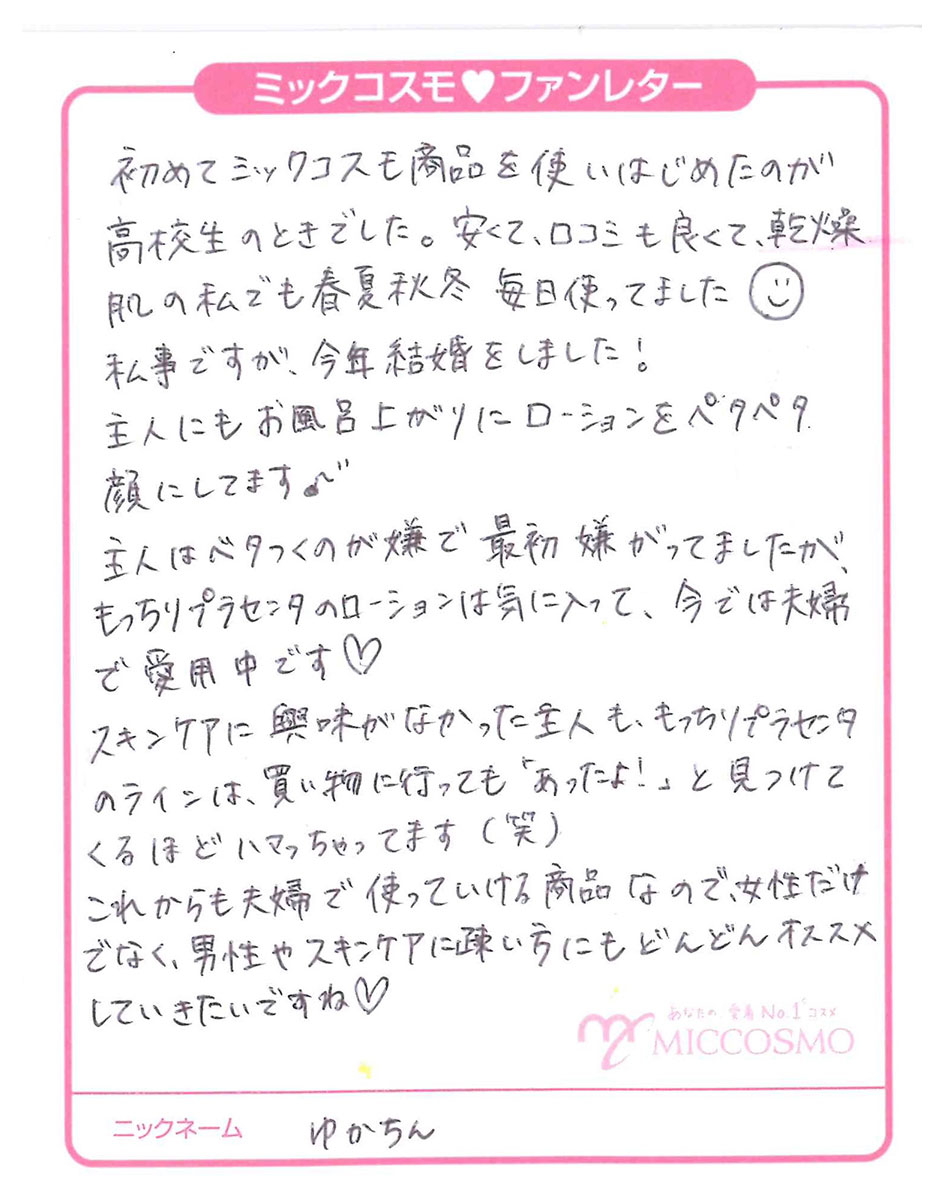 ミックコスモ♥ファンレター
初めてミックコスモ商品を使いはじめたのが
高校生のときでした。安くて、口コミも良くて、乾燥
肌の私でも春夏秋冬 毎日使ってました☺
私事ですが、今年結婚をしました!
主人にもお風呂上がりにローションをペタペタ
顔にしてます♪
主人はベタつくのが嫌で 最初 嫌がってましたが、
もっちりプラセンタのローションは気に入って、今では夫婦
で愛用中です♡
スキンケアに興味がなかった主人も、もっちりプラセンタ
のラインは、買い物に行っても「あったよ!」と見つけて
くるほどハマっちゃってます(笑)
これからも夫婦で使っていける商品なので、女性だけ
でなく、男性やスキンケアに疎い方にもどんどんオススメ
していきたいですね♡
あなたの、愛着No.1コスメ
MICCOSMO
ニックネーム ゆかちん